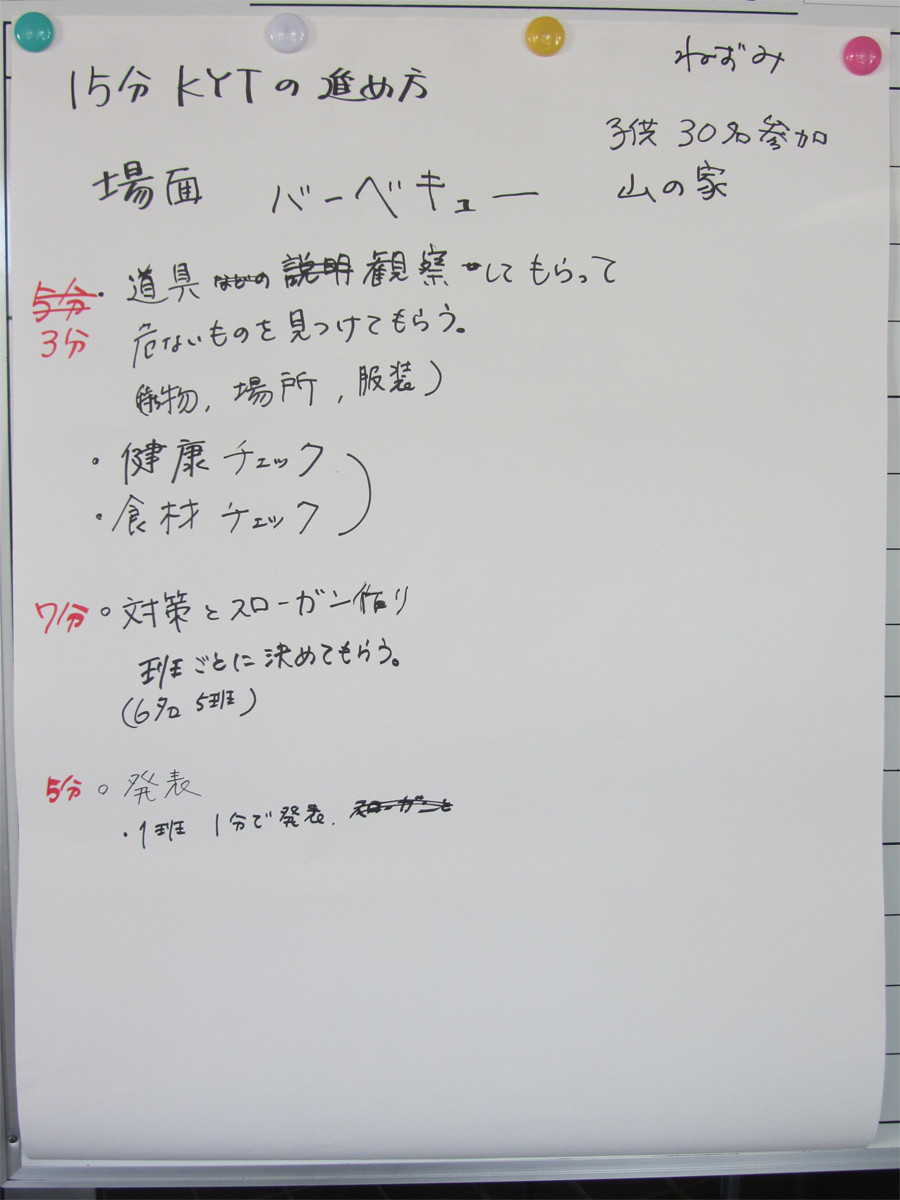 ねずみ
15分 KYTの進め方
子供 30名参加
場面 バーベキュー 山の家
5分・道具 などの 説明 観察 してもらって
3分 危ないものを見つけてもらう。
物, 場所, 服装)
・健康チェック
・食材チェック
7分 ○対策とスローガン作り
班ごとに決めてもらう。
(6名 5班)
5分 ○発表
・1班 1分で発表. スローガンと